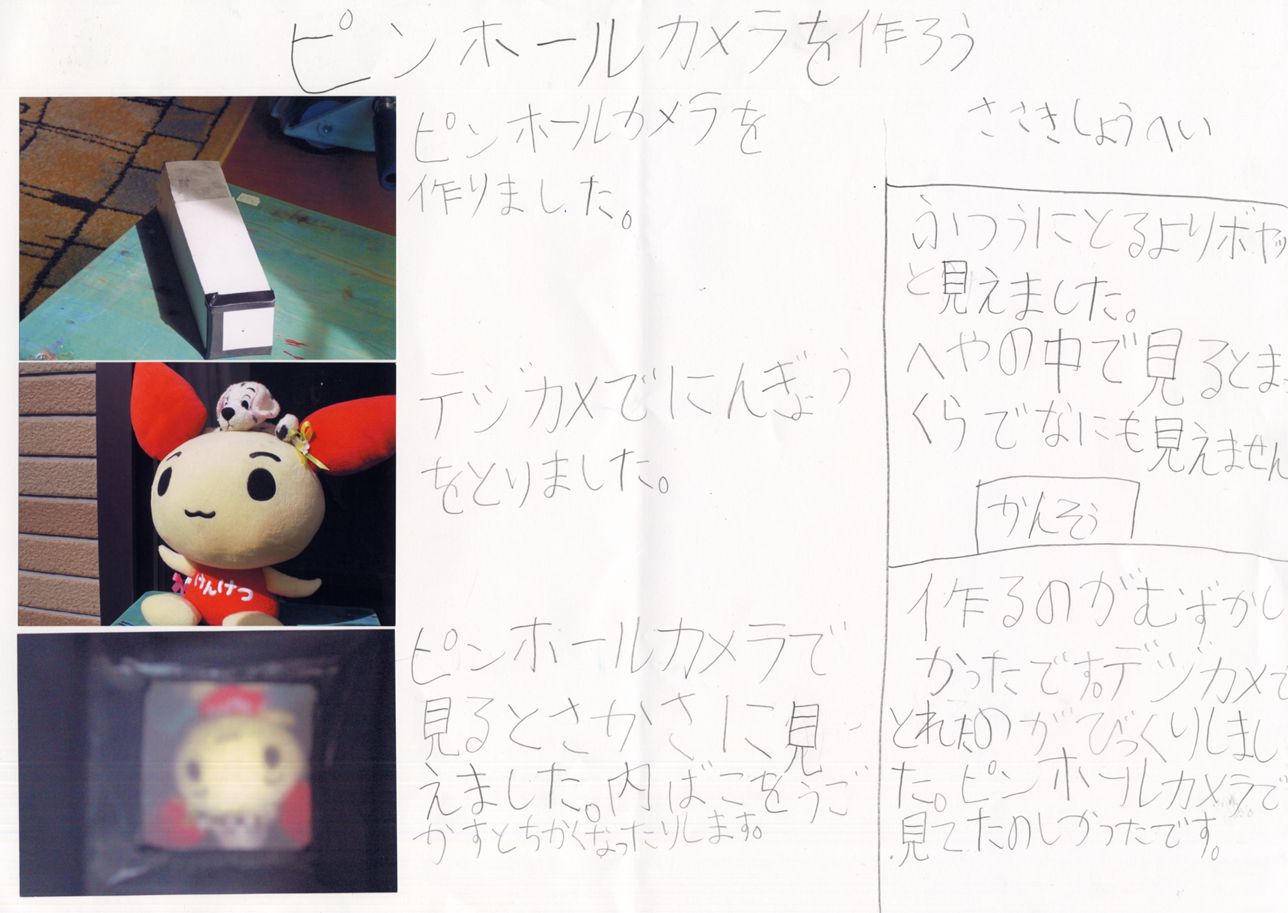 ピンホールカメラを作ろう
ピンホールカメラを
作りました。
デジカメでにんぎょう
をとりました。
けんけつ
ピンホールカメラで
見るとさかさに見
えました。内ばこをうご
かすとちかくなったりします。
ささきしょうへい
ふつうにとるよりボヤッ
と見えました。
へやの中で見るとまっ
くらでなにも見えません
かんそう
作るのがむずかし
かったです。デジカメで
とれたのがびっくりしまし
た。ピンホールカメラで
見てたのしかったです。